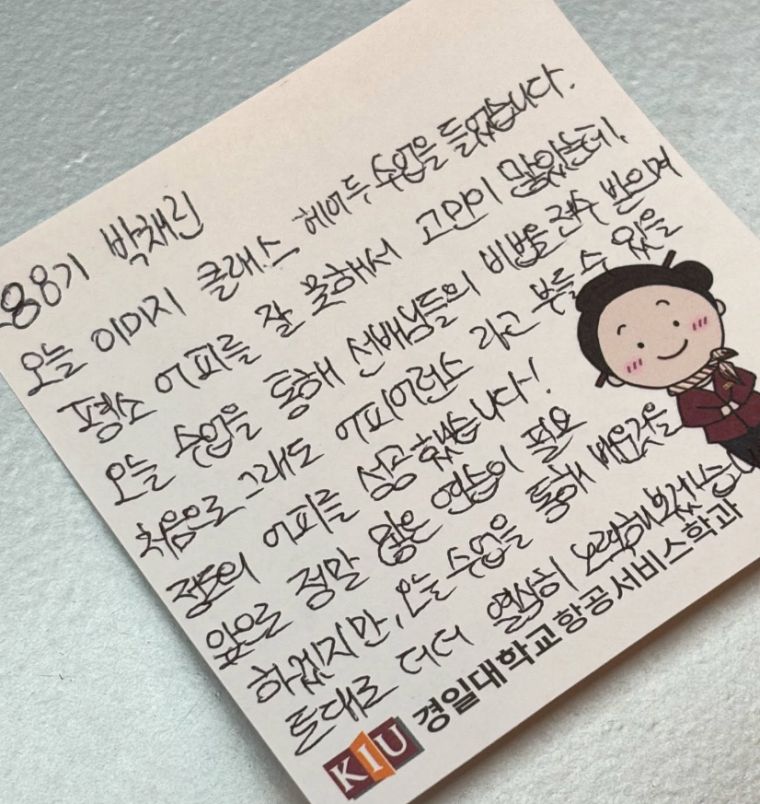 88기 박채린
오늘 이미지 클래스 헤어두 수업을 들었습니다.
평소 어피를 잘 못해서 고민이 많았는데,
오늘 수업을 통해 선배님들의 비법을 전수 받으며
처음으로 그래도 어피어런스 라고 부를 수 있을
정도의 어피를 성공했습니다!
앞으로 정말 많은 연습이 필요
하겠지만, 오늘 수업을 통해 배운것을
토대로 더더 열심히 노력해보겠습니다
KIU 경일대학교항공서비스학과